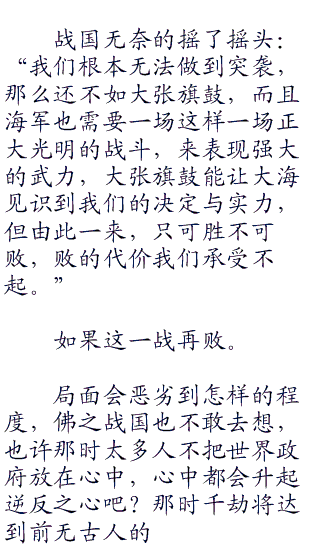 战国无奈的摇了摇头：
“我们根本无法做到突袭，
那么还不如大张旗鼓，而且
海军也需要一场这样一场正
大光明的战斗，来表现强大
的武力，大张旗鼓能让大海
见识到我们的决定与实力，
但由此一来，只可胜不可
败，败的代价我们承受不
起。”
如果这一战再败。
局面会恶劣到怎样的程
度，佛之战国也不敢去想，
也许那时太多人不把世界政
府放在心中，心中都会升起
逆反之心吧？那时千劫将达
到前无古人的